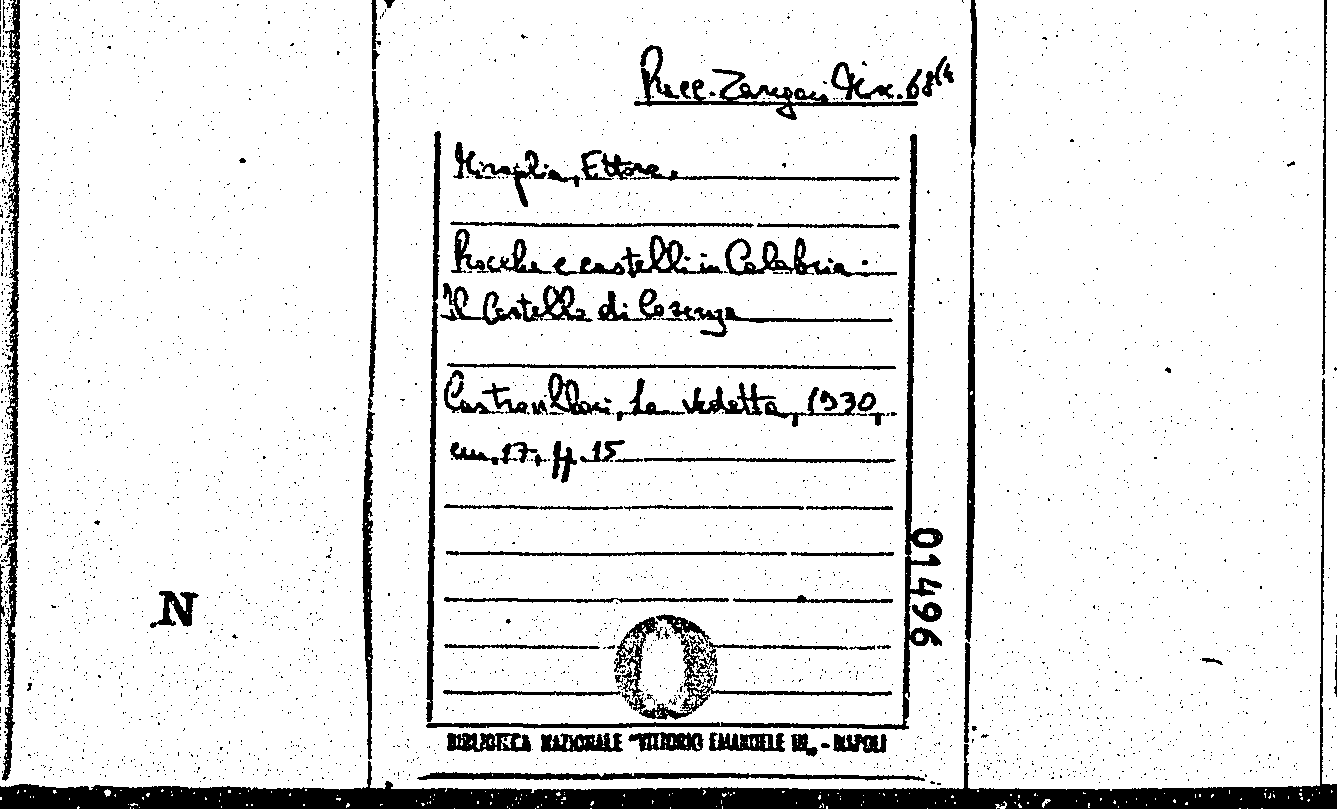 Racc. Zangari Misc. 68(4
Miraglia, Ettore.
Rocche e castelli in Calabria:
Il Castello di Cosenza
Castrovillari, La vedetta, 1930,
cm. 17, pp. 15
01496
N
BIBLIOTECA NAZIONALE "VITTORIO EMANUELE III„ - NAPOLI